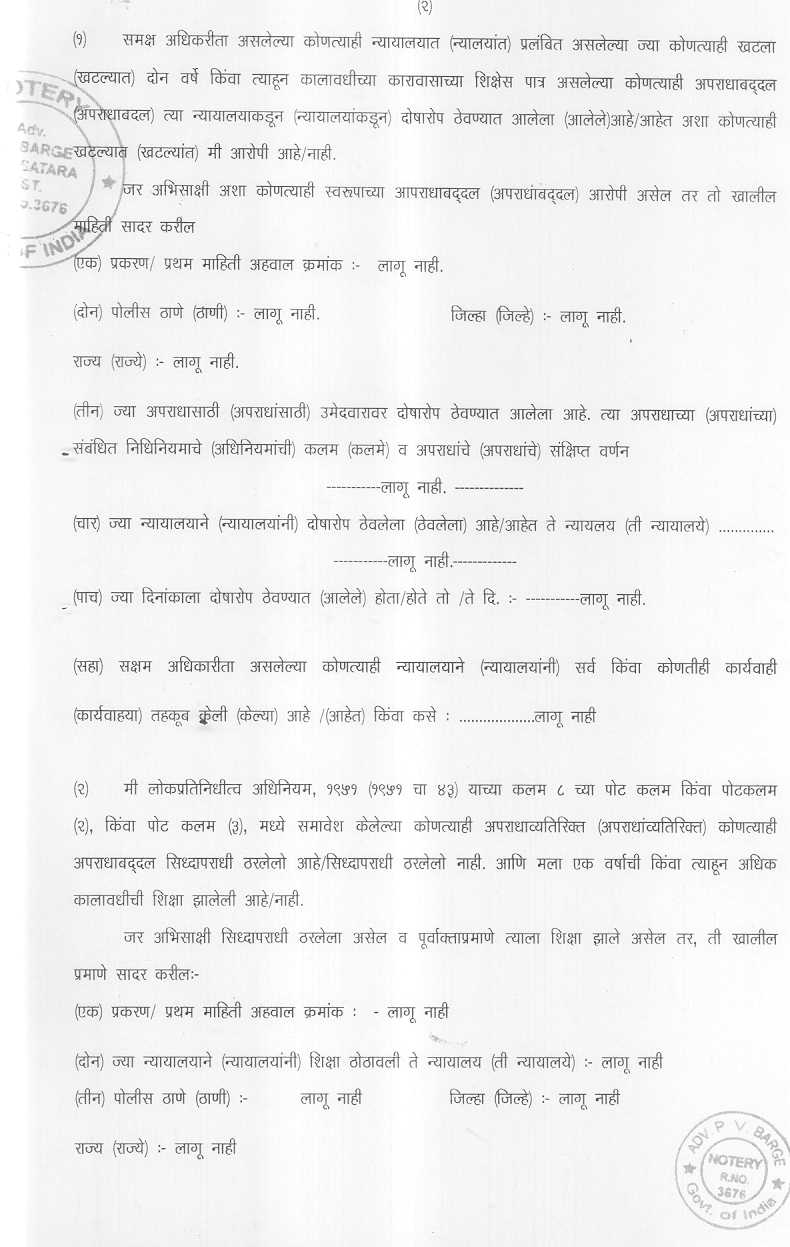 (२)
(१) समक्ष अधिकरीता असलेल्या कोणत्याही न्यायालयात (न्यालयांत) प्रलंबित असलेल्या ज्या कोणत्याही खटला
(खटल्यात) दोन वर्षे किंवा त्याहून कालावधीच्या कारावासाच्या शिक्षेस पात्र असलेल्या कोणत्याही अपराधाबद्दल
(अपराधाबदल) त्या न्यायालयाकडून (न्यायालयांकडून) दोषारोप ठेवण्यात आलेला (आलेले)आहे/आहेत अशा कोणत्याही
खटल्यात (खटल्यांत) मी आरोपी आहे/नाही.
जर अभिसाक्षी अशा कोणत्याही स्वरूपाच्या आपराधाबद्दल (अपराधांबद्दल) आरोपी असेल तर तो खालील
माहिती सादर करील
(एक) प्रकरण/ प्रथम माहिती अहवाल क्रमांक :- लागू नाही.
(दोन) पोलीस ठाणे (ठाणी) :- लागू नाही. जिल्हा (जिल्हे) :- लागू नाही.
राज्य (राज्ये) :- लागू नाही.
(तीन) ज्या अपराधासाठी (अपराधांसाठी) उमेदवारावर दोषारोप ठेवण्यात आलेला आहे. त्या अपराधाच्या (अपराधांच्या)
संबंधित निधिनियमाचे (अधिनियमांची) कलम (कलमे) व अपराधांचे (अपराधांचे) संक्षिप्त वर्णन
-----------लागू नाही. --------------
(चार) ज्या न्यायालयाने (न्यायालयांनी) दोषारोप ठेवलेला (ठेवलेला) आहे/आहेत ते न्यायलय (ती न्यायालये) ..............
-----------लागू नाही.-------------
(पाच) ज्या दिनांकाला दोषारोप ठेवण्यात (आलेले) होता/होते तो /ते दि. :- -----------लागू नाही.
(सहा) सक्षम अधिकारीता असलेल्या कोणत्याही न्यायालयाने (न्यायालयांनी) सर्व किंवा कोणतीही कार्यवाही
(कार्यवाहया) तहकूब केली (केल्या) आहे /(आहेत) किंवा कसे : ...................लागू नाही
(२) मी लोकप्रतिनिधीत्व अधिनियम, १९५१ (१९५१ चा ४३) याच्या कलम ८ च्या पोट कलम किंवा पोटकलम
(२), किंवा पोट कलम (३), मध्ये समावेश केलेल्या कोणत्याही अपराधाव्यतिरिक्त (अपराधांव्यतिरिक्त) कोणत्याही
अपराधाबद्दल सिध्दापराधी ठरलेलो आहे/सिध्दापराधी ठरलेलो नाही. आणि मला एक वर्षाची किंवा त्याहून अधिक
कालावधीची शिक्षा झालेली आहे/नाही.
जर अभिसाक्षी सिध्दापराधी ठरलेला असेल व पूर्वाक्ताप्रमाणे त्याला शिक्षा झाले असेल तर, ती खालील
प्रमाणे सादर करील:-
(एक) प्रकरण/ प्रथम माहिती अहवाल क्रमांक : - लागू नाही
(दोन) ज्या न्यायालयाने (न्यायालयांनी) शिक्षा ठोठावली ते न्यायालय (ती न्यायालये) :- लागू नाही
(तीन) पोलीस ठाणे (ठाणी) :- लागू नाही जिल्हा (जिल्हे) :- लागू नाही
राज्य (राज्ये) :- लागू नाही
OTERY
Adv.
BARGE
SATARA
ST.
3676
OF INDIA
ADV. P. V. BARGE
NOTERY
R.NO.
3676
Govt. of India